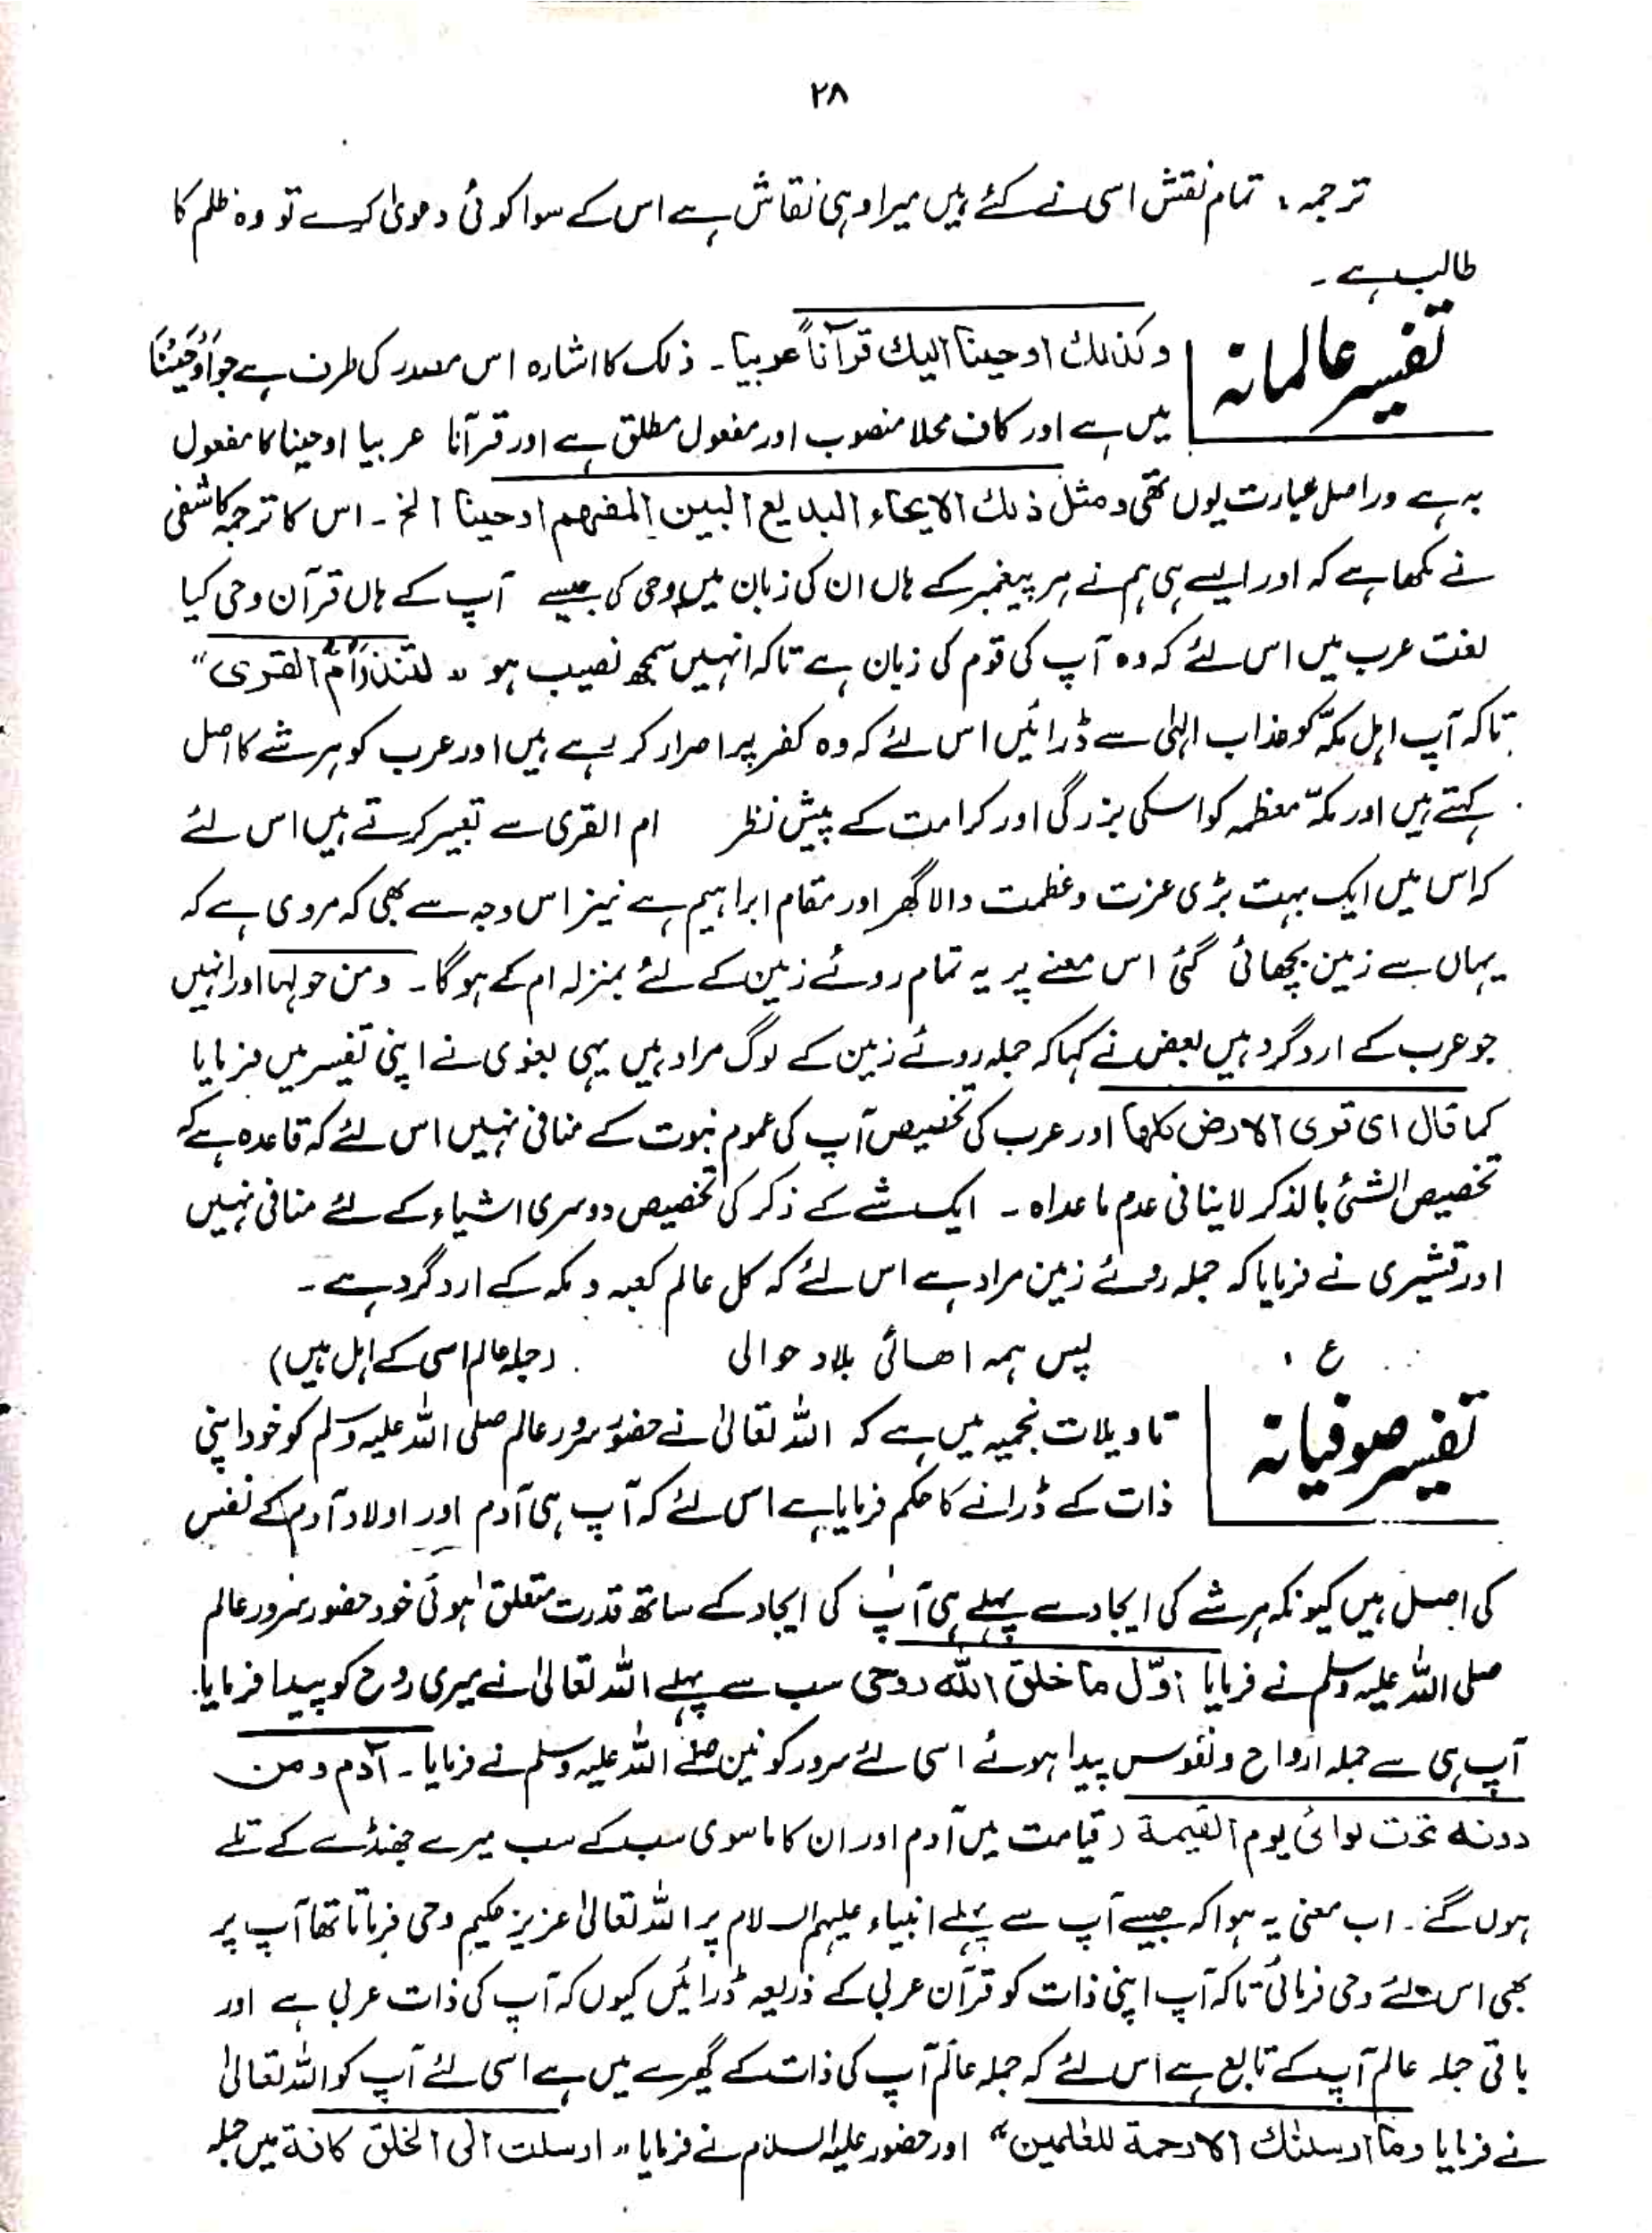 ۲۸
ترجمہ: تمام نقش اسی نے کئے ہیں میرا وہی نقاش ہے اس کے سوا کوئی دعویٰ کرے تو وہ ظلم کا
طالب ہے۔
تفسیر عالمانہ
وکذلك اوحینا الیك قرآناً عربیا۔ ذلک کا اشارہ اس مصدر کی طرف ہے جو اَوْحَیْنَا
میں ہے اور کاف محلا منصوب اور مفعول مطلق ہے اور قرآنا عربیا اوحینا کا مفعول
بہ ہے دراصل عبارت یوں تھی ومثل ذلك الایحاء البدیع البین المفہم اوحینا الخ۔ اس کا ترجمہ کاشفی
نے لکھا ہے کہ اور ایسے ہی ہم نے ہر پیغمبر کے ہاں ان کی زبان میں وحی کی جیسے آپ کے ہاں قرآن وحی کیا
لغت عرب میں اس لئے کہ وہ آپ کی قوم کی زبان ہے تاکہ انہیں سمجھ نصیب ہو "لتنذر اُمَّ القری"
تاکہ آپ اہل مکہّ کو عذاب الٰہی سے ڈرائیں اس لئے کہ وہ کفر پر اصرار کر رہے ہیں اور عرب کو ہر شے کا اصل
کہتے ہیں اور مکہّ معظمہ کو اسکی بزرگی اور کرامت کے پیش نظر ام القری سے تعبیر کرتے ہیں اس لئے
کہ اس میں ایک بہت بڑی عزت وعظمت والا گھر اور مقام ابراہیم ہے نیز اس وجہ سے بھی کہ مروی ہے کہ
یہاں سے زمین بچھائی گئی اس معنے پر یہ تمام روئے زمین کے لئے بمنزلہ ام کے ہوگا۔ ومن حولہا اور انہیں
جو عرب کے اردگرد ہیں بعض نے کہا کہ جملہ روئے زمین کے لوگ مراد ہیں یہی بغوی نے اپنی تفسیر میں فرمایا
کما قال ای قری الارض کلھا اور عرب کی تخصیص آپ کی عموم نبوت کے منافی نہیں اس لئے کہ قاعدہ ہے کہ
تخصیص الشئی بالذکر لاینافی عدم ماعداہ۔ ایک شے کے ذکر کی تخصیص دوسری اشیاء کے لئے منافی نہیں
اور قشیری نے فرمایا کہ جملہ روئے زمین مراد ہے اس لئے کہ کل عالم کعبہ و مکہ کے اردگرد ہے۔
ع: پس ہمہ اھائی بلاد حوالی (جملہ عالم اسی کے اہل ہیں)
تفسیر صوفیانہ
تاویلات نجمیہ میں ہے کہ اللہ تعالیٰ نے حضور سرور عالم صلی اللہ علیہ وسلم کو خود اپنی
ذات کے ڈرانے کا حکم فرمایا ہے اس لئے کہ آپ ہی آدم اور اولاد آدم کے نفس
کی اصل ہیں کیونکہ ہر شے کی ایجاد سے پہلے ہی آپ کی ایجاد کے ساتھ قدرت متعلق ہوئی خود حضور سرور عالم
صلی اللہ علیہ وسلم نے فرمایا اوّل ما خلق اللہ روحی سب سے پہلے اللہ تعالیٰ نے میری روح کو پیدا فرمایا۔
آپ ہی سے جملہ ارواح ونفوس پیدا ہوئے اسی لئے سرور کونین صلے اللہ علیہ وسلم نے فرمایا۔ آدم ومن
دونہ تحت لوائی یوم القیمۃ (قیامت میں آدم اور ان کا ماسوی سب کے سب میرے جھنڈے کے تلے
ہوں گے۔ اب معنی یہ ہوا کہ جیسے آپ سے پہلے انبیاء علیہم السلام پر اللہ تعالیٰ عزیز حکیم وحی فرماتا تھا آپ پر
بھی اس لئے وحی فرمائی تاکہ آپ اپنی ذات کو قرآن عربی کے ذریعہ ڈرائیں کیوں کہ آپ کی ذات عربی ہے اور
باقی جملہ عالم آپ کے تابع ہے اس لئے کہ جملہ عالم آپ کی ذات کے گھیرے میں ہے اسی لئے آپ کو اللہ تعالیٰ
نے فرمایا وما ارسلنٰك الا رحمۃ للعٰلمین" اور حضور علیہ السلام نے فرمایا "ارسلت الی الخلق کافۃ میں جملہ